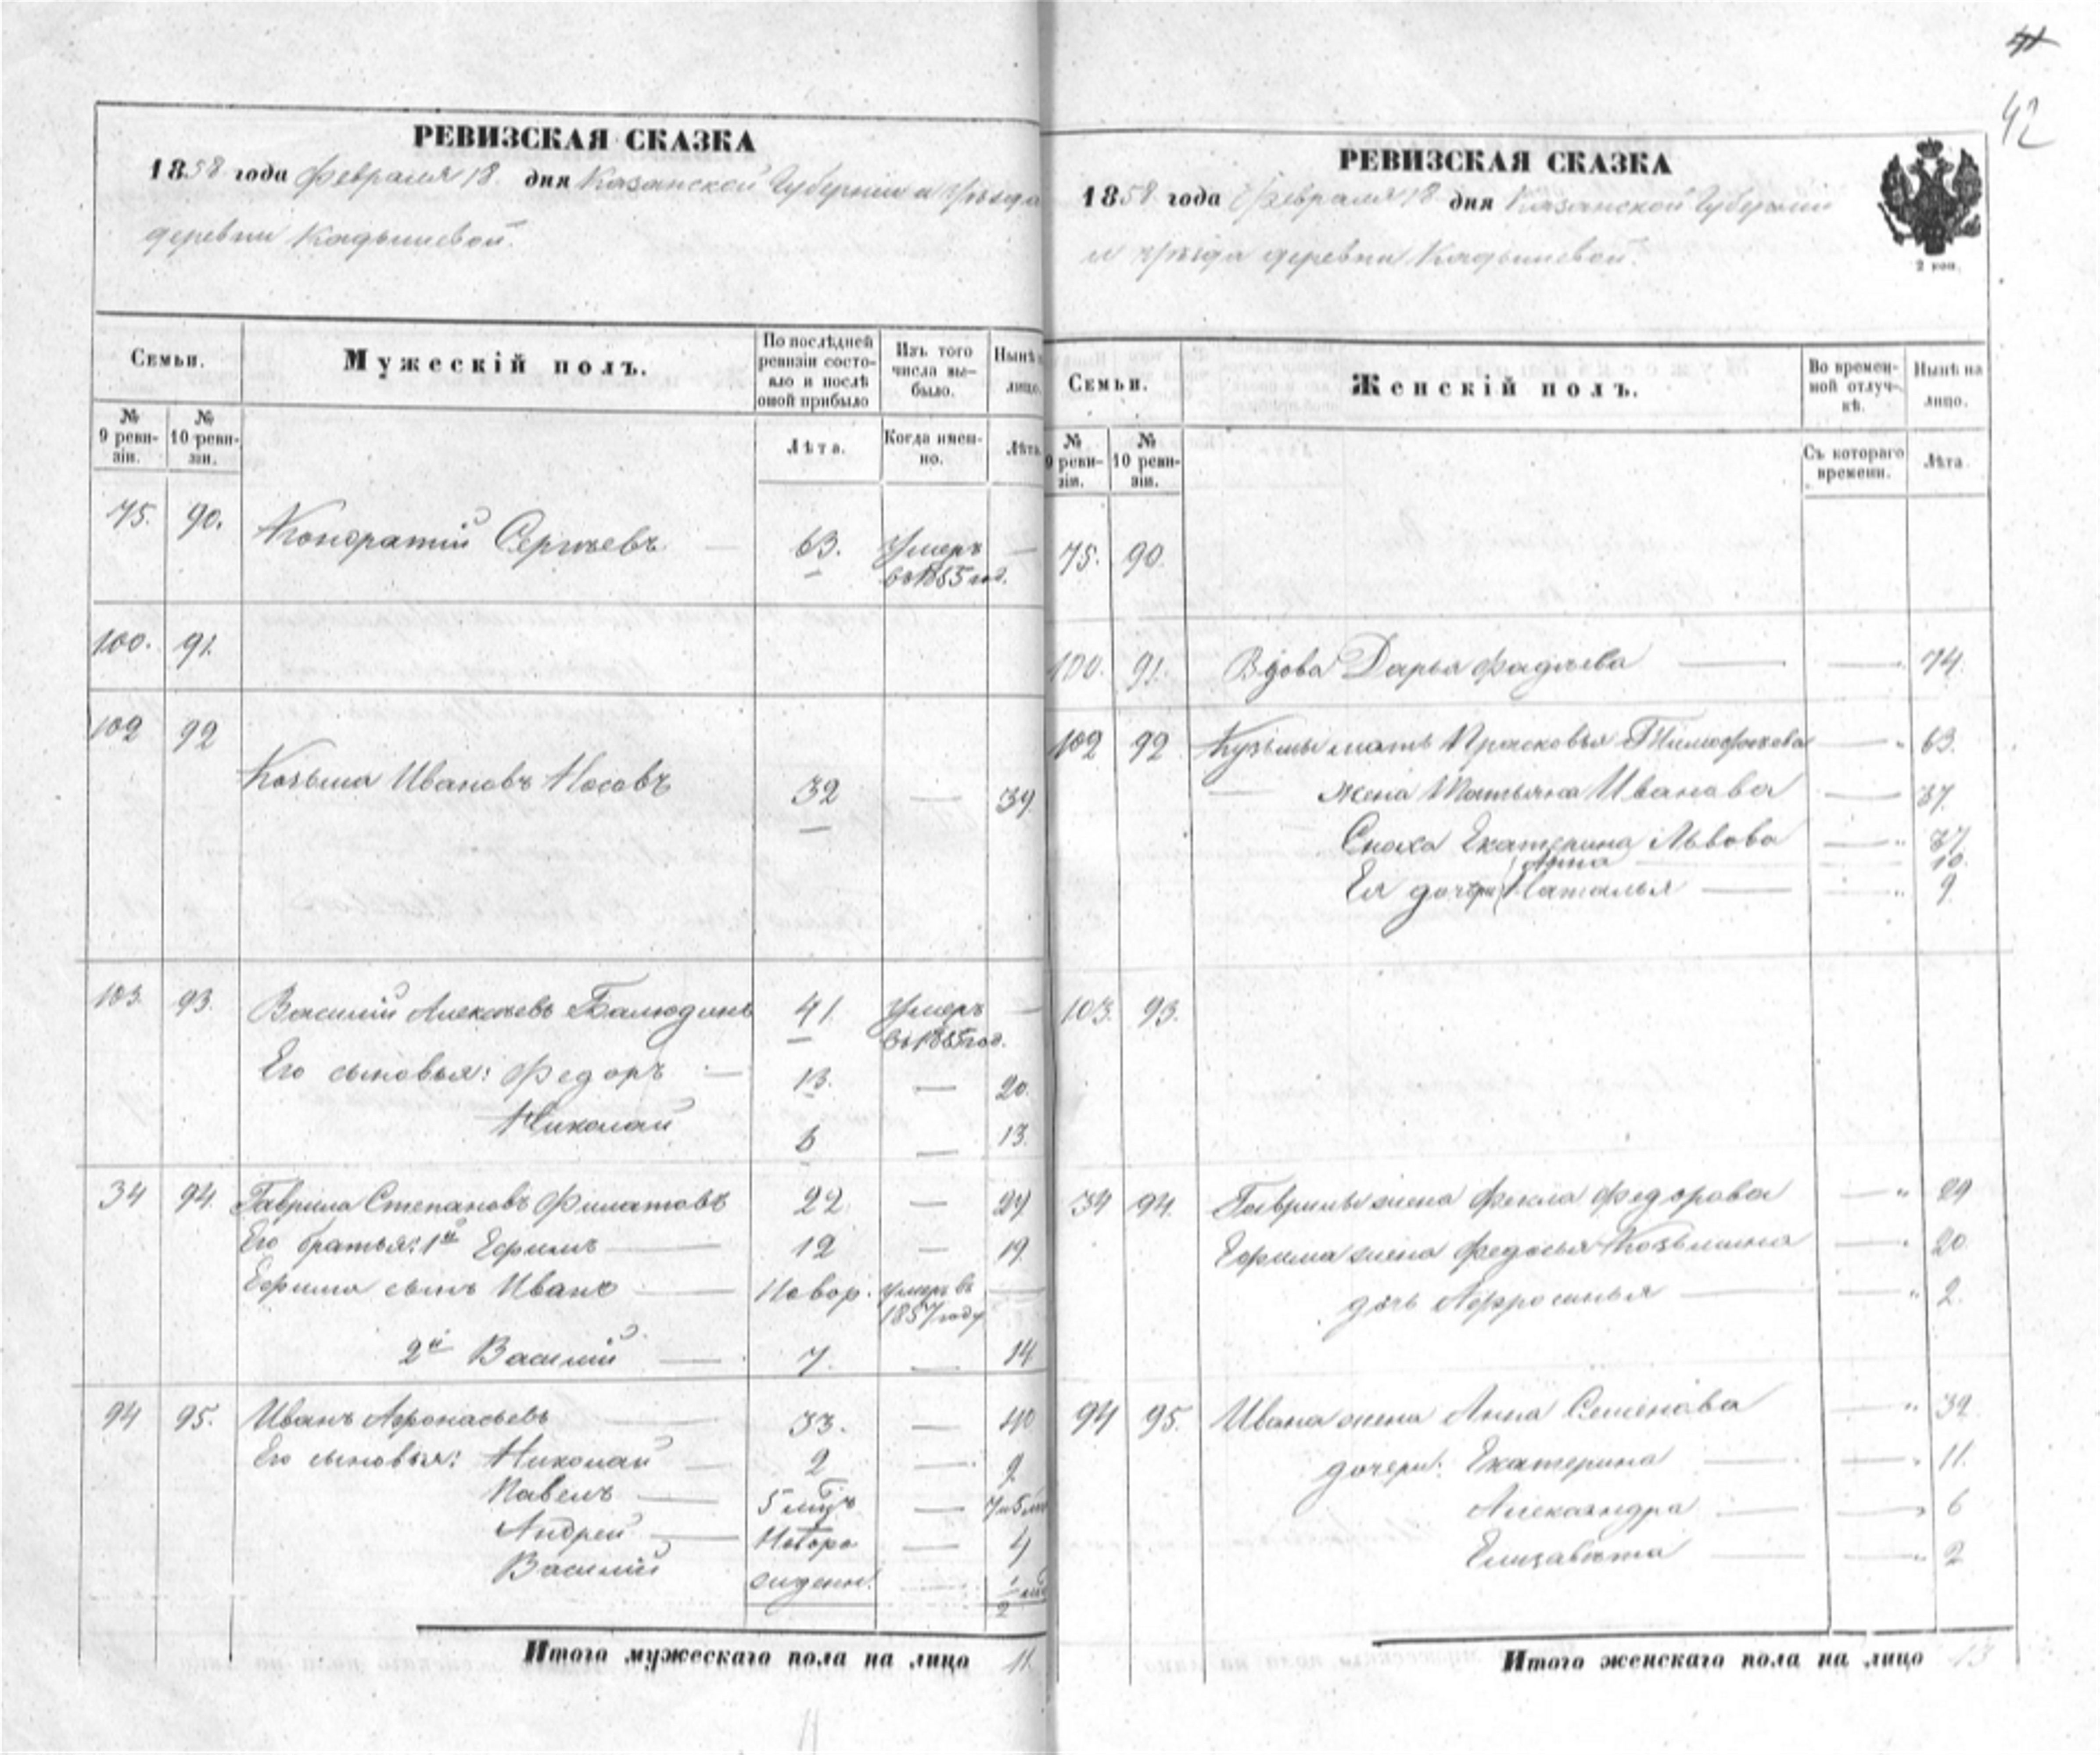 42
РЕВИЗСКАЯ СКАЗКА
1858 года Февраля 18 дня Казанской Губернии и Уѣзда
деревни Кадышевой.
Семьи.
Мужескій полъ.
По послѣдней ревизіи состояло и послѣ оной прибыло
Изъ того числа выбыло.
Нынѣ на лицо.
№ 9 ревизіи.
№ 10 ревизіи.
Лѣта.
Когда именно.
Лѣта
75. 90. Кондратій Сергѣевъ 63. Умеръ
въ 1855 год.
100. 91.
102 92
Козьма Ивановъ Носовъ 32 39.
103. 93. Василій Алексѣевъ Балюдинъ 41. Умеръ
въ 1855 год.
Его сыновья: Федоръ 13. 20.
Николай 6 13.
34 94. Гаврила Степановъ Филатовъ 22 29
Его братья: 1й Ефимъ 12 19.
Ефима сынъ Иванъ Новор. умеръ въ
1857 году
2й Василій 7. 14
94 95. Иванъ Афонасьевъ 33. 40
Его сыновья: Николай 2 9
Павелъ 5 мцъ 7 и 5
Андрей Новоро 4
Василій жденн. 1/2
Итого мужескаго пола на лицо 11.
РЕВИЗСКАЯ СКАЗКА
1858 года Февраля 18 дня Казанской Губернии
и уѣзда деревни Кадышевой.
2 коп.
Семьи.
Женскій полъ.
Во временной отлучкѣ.
Нынѣ на лицо.
№ 9 ревизіи.
№ 10 ревизіи.
Съ котораго времени.
Лѣта
75. 90.
100. 91. Вдова Дарья Фадѣева 74.
102 92 Кузьмы мать Прасковья Тимофѣева 63.
жена Татьяна Иванова 37.
Сноха Екатерина Львова 37
Анна 10.
Ея дочери Наталья 9
103. 93.
34 94. Гаврилы жена Фекла Федорова 29
Ефима жена Федосья Козьмина 20
дочь Афросинья 2.
94 95. Ивана жена Анна Семенова 32
дочери: Екатерина 11.
Александра 6
Елизавѣта 2
Итого женскаго пола на лицо 13